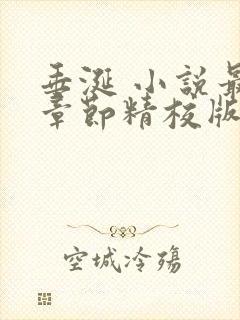 垂涎 小説最
章節精校版
空城冷殤